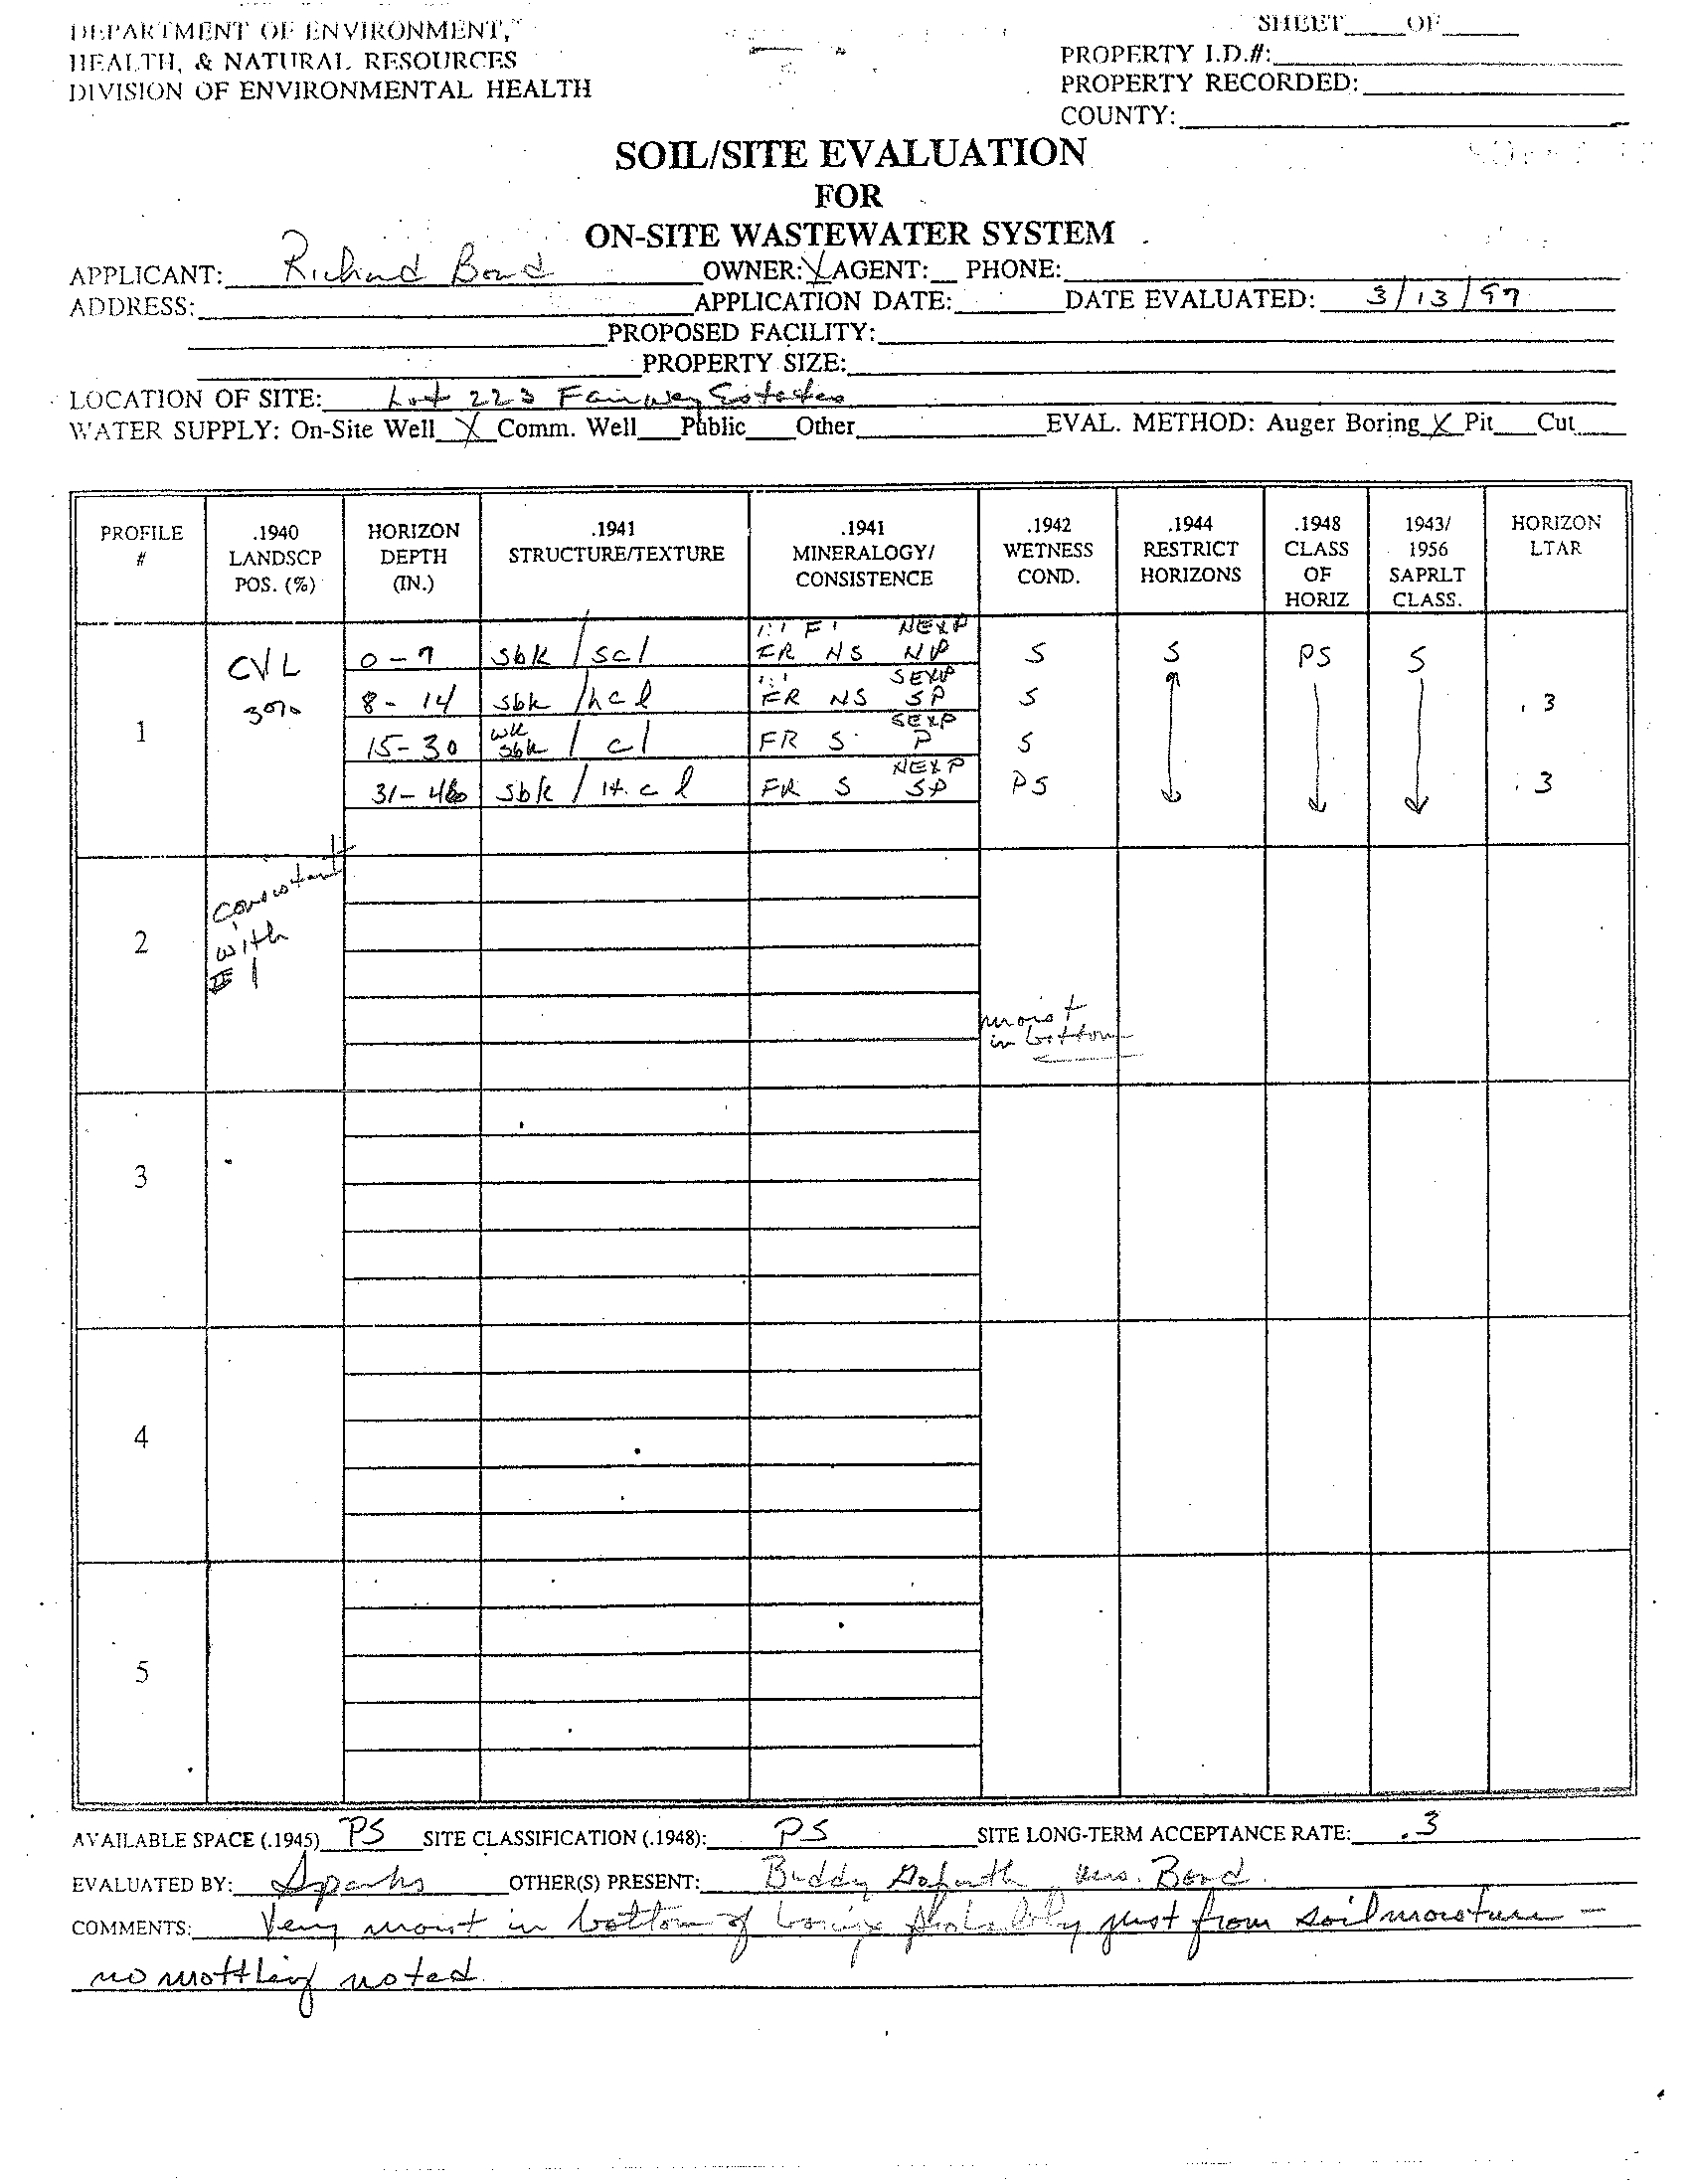 DEPARTMENT OF ENVIRONMENT,
HEALTH, & NATURAL RESOURCES
DIVISION OF ENVIRONMENTAL HEALTH
SHEET____OF____
PROPERTY I.D.#:
PROPERTY RECORDED:
COUNTY:
SOIL/SITE EVALUATION
FOR
ON-SITE WASTEWATER SYSTEM
APPLICANT: Richard Bond OWNER: X AGENT:__ PHONE:
ADDRESS: APPLICATION DATE: DATE EVALUATED: 3/13/97
PROPOSED FACILITY:
PROPERTY SIZE:
LOCATION OF SITE: Lot 223 Fairway Estates
WATER SUPPLY: On-Site Well X Comm. Well___Public___Other EVAL. METHOD: Auger Boring X Pit___Cut___
PROFILE # .1940 LANDSCP POS. (%) HORIZON DEPTH (IN.) .1941 STRUCTURE/TEXTURE .1941 MINERALOGY/ CONSISTENCE .1942 WETNESS COND. .1944 RESTRICT HORIZONS .1948 CLASS OF HORIZ 1943/ 1956 SAPRLT CLASS. HORIZON LTAR
1:1 FI NEXP
CVL 0-7 sbk / scl FR NS NP S S PS S
1:1 SEXP
3% 8-14 sbk / hcl FR NS SP S .3
1 wk SEXP
15-30 sbk / cl FR S P S
NEXP
31-48 sbk / lt. cl FR S SP PS .3
2 consistent
with
# 1
moist
in bottom
3
4
5
AVAILABLE SPACE (.1945) PS SITE CLASSIFICATION (.1948): PS SITE LONG-TERM ACCEPTANCE RATE: .3
EVALUATED BY: Sparks OTHER(S) PRESENT: Buddy Mrs. Bond.
COMMENTS: Very moist in bottom of borings probably just from soil moisture -
no mottling noted.